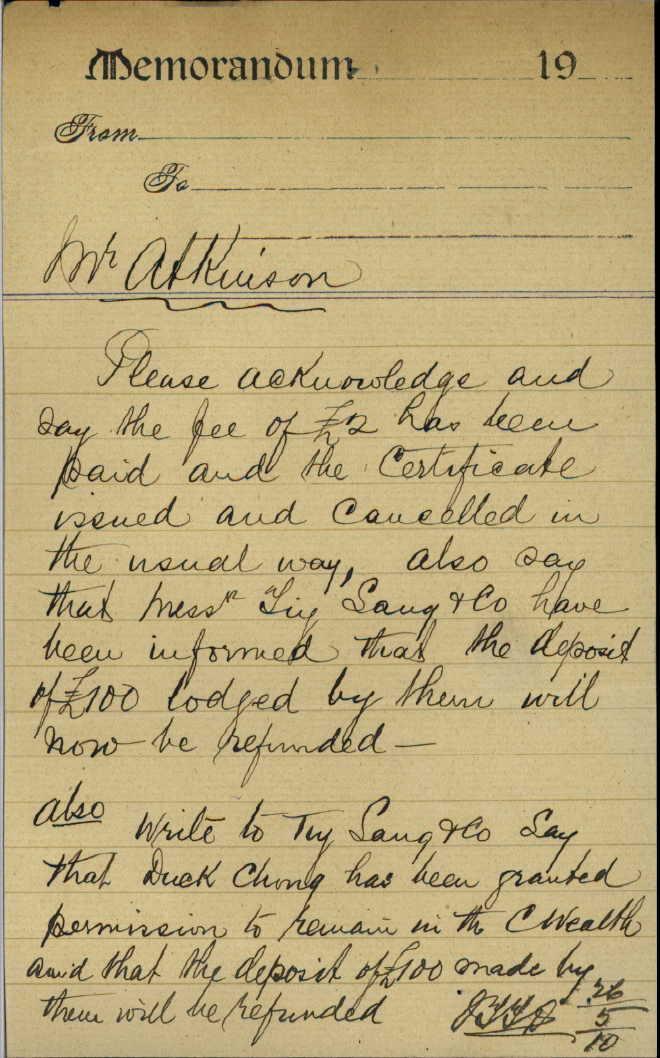 Memorandum 19
From
To
Mr Atkinson
Please acknowledge and
say the fee of £2 has been
paid and the Certificate
issued and Cancelled in
the usual way, also say
that Messrs Tiy Sang & Co have
been informed that the deposit
of £100 lodged by them will
now be refunded —
also Write to Tiy Sang & Co Say
that Duck Chong has been granted
permission to remain in the CWealth
and that the deposit of £100 made by
them will be refunded
26/5/10